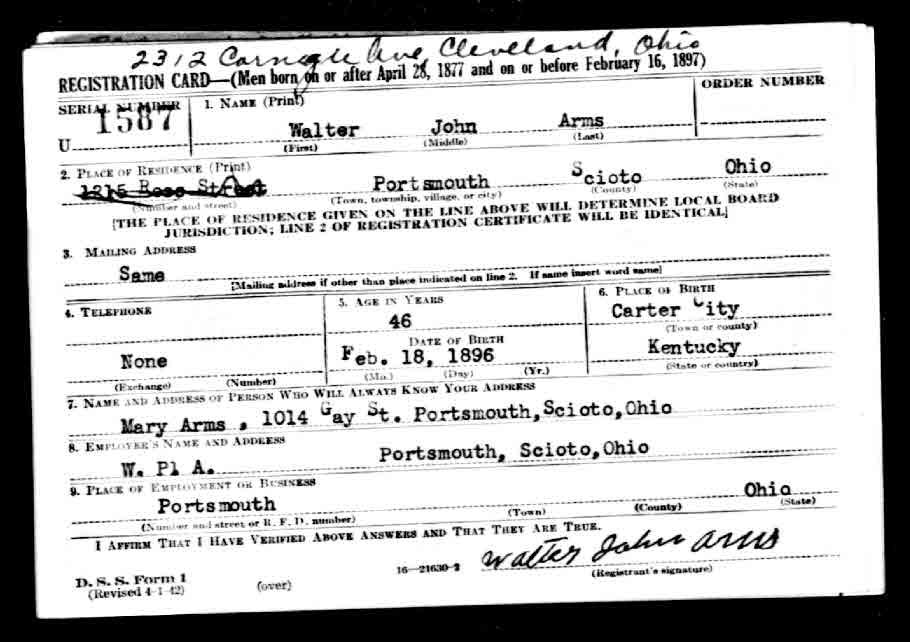 2312 Carnegie Ave Cleveland, Ohio
REGISTRATION CARD—(Men born on or after April 28, 1877 and on or before February 16, 1897)
SERIAL NUMBER 1. NAME (Print) ORDER NUMBER
U 1587
Walter John Arms
(First) (Middle) (Last)
2. PLACE OF RESIDENCE (Print)
1215 Ross Street Portsmouth Scioto Ohio
(Number and street) (Town, township, village, or city) (County) (State)
[THE PLACE OF RESIDENCE GIVEN ON THE LINE ABOVE WILL DETERMINE LOCAL BOARD
JURISDICTION; LINE 2 OF REGISTRATION CERTIFICATE WILL BE IDENTICAL]
3. MAILING ADDRESS
Same
[Mailing address if other than place indicated on line 2. If same insert word same]
4. TELEPHONE 5. AGE IN YEARS 6. PLACE OF BIRTH
46 Carter City
(Town or county)
DATE OF BIRTH
None Feb. 18, 1896 Kentucky
(Exchange) (Number) (Mo.) (Day) (Yr.) (State or country)
7. NAME AND ADDRESS OF PERSON WHO WILL ALWAYS KNOW YOUR ADDRESS
Mary Arms , 1014 Gay St. Portsmouth,Scioto,Ohio
8. EMPLOYER'S NAME AND ADDRESS
W. Pl A. Portsmouth, Scioto,Ohio
9. PLACE OF EMPLOYMENT OR BUSINESS
Portsmouth Ohio
(Number and street or R. F. D. number) (Town) (County) (State)
I AFFIRM THAT I HAVE VERIFIED ABOVE ANSWERS AND THAT THEY ARE TRUE.
Walter John Arms
D. S. S. Form 1 16—21630-2 (Registrant's signature)
(Revised 4-1-42) (over)